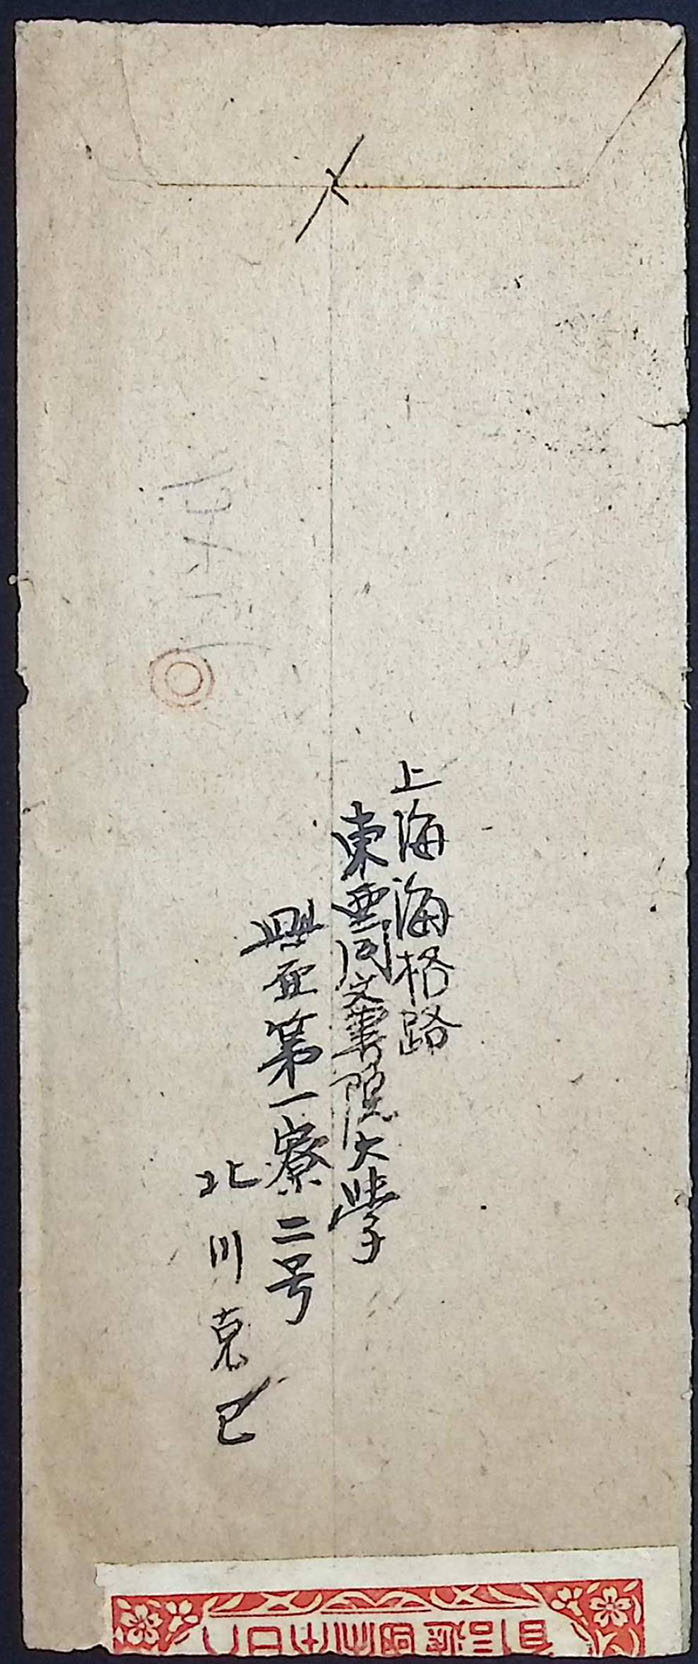 上海海格路
東亜同文書院大学
興亜第一寮二号
北川克巳